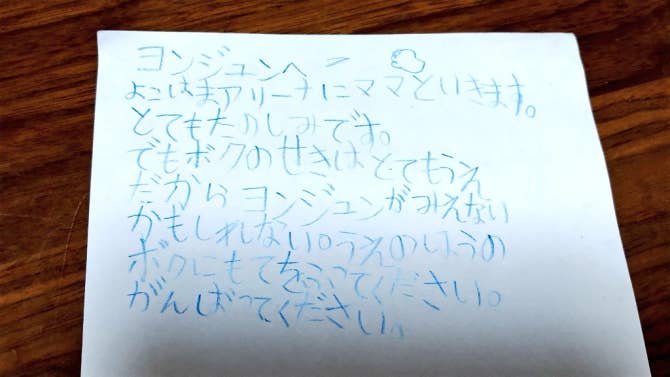 ヨンジュンへ
よこはまアリーナにママといきます。
とてもたのしみです。
でもボクのせきはとてもうえ
だから ヨンジュンがみえない
かもしれない。うえのほうの
ボクにもてをふってください。
がんばってください。